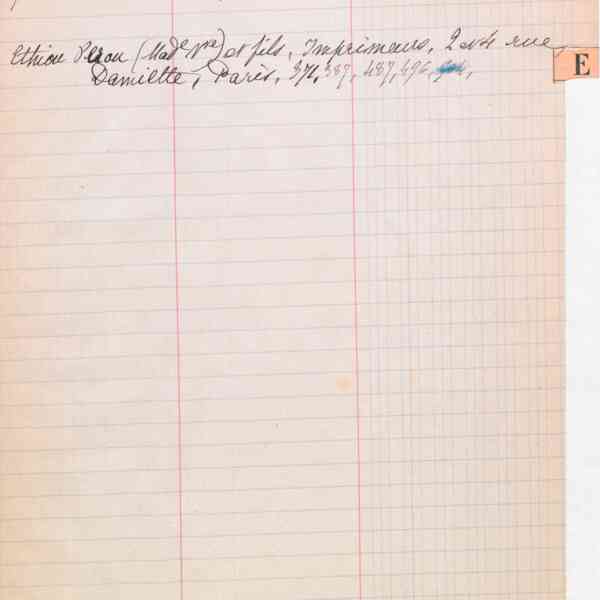 Ethiou Péron (Made Vve) et fils, Imprimeurs, 2 et 4 rue
Damiette, Paris, 371, 387, 487, 496,
E